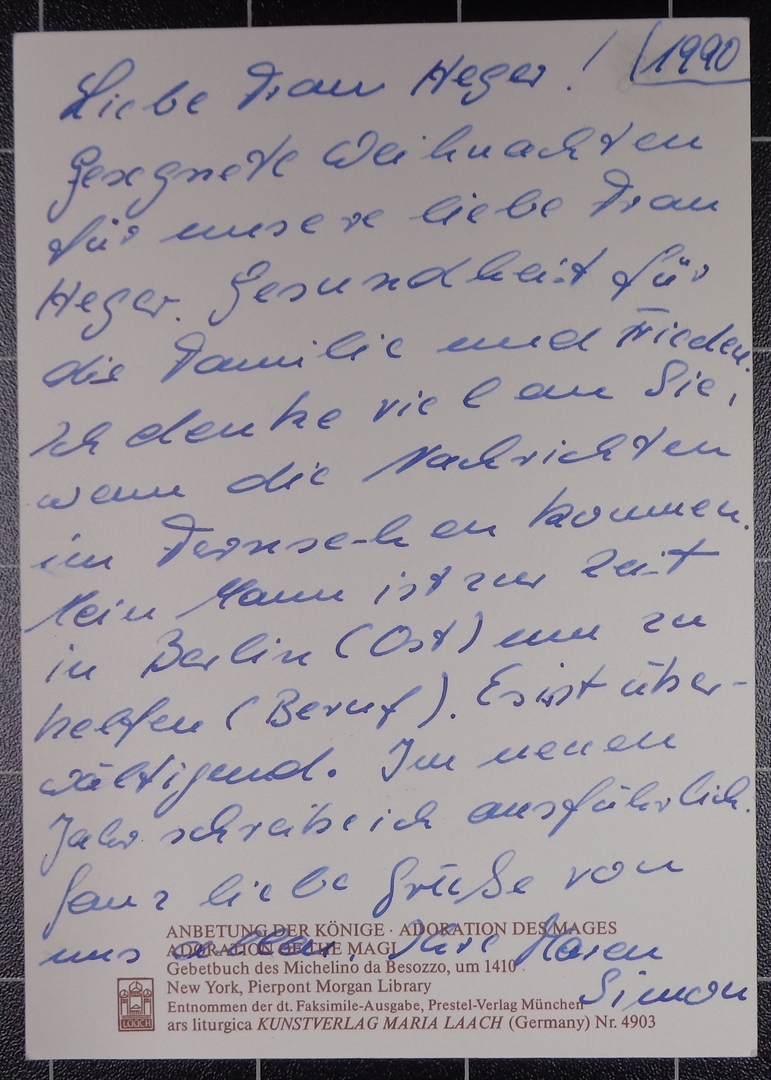 Liebe Frau Heger! 1990
Gesegnete Weihnachten
für unsere liebe Frau
Heger. Gesundheit für
die Familie und Frieden.
Ich denke viel an Sie,
wenn die Nachrichten
im Fernsehen kommen.
Mein Mann ist zur Zeit
in Berlin (Ost) um zu
helfen (Beruf). Es ist über-
wältigend. Im neuen
Jahr schreibe ich ausführlich.
Ganz liebe Grüße von
uns allen. Ihre Maren
Simon
ANBETUNG DER KÖNIGE · ADORATION DES MAGES
ADORATION OF THE MAGI
Gebetbuch des Michelino da Besozzo, um 1410
New York, Pierpont Morgan Library
Entnommen der dt. Faksimile-Ausgabe, Prestel-Verlag München
ars liturgica KUNSTVERLAG MARIA LAACH (Germany) Nr. 4903
LAACH